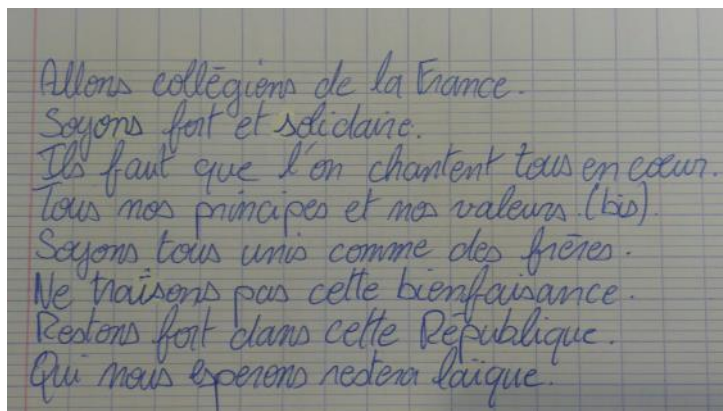 Allons collégiens de la France.
Soyons fort et solidaire.
Ils faut que l'on chantent tous en cœur.
Tous nos principes et nos valeurs. (bis).
Soyons tous unis comme des frères.
Ne traîsons pas cette bienfaisance.
Restons fort dans cette République.
Qui nous esperons restera laïque.